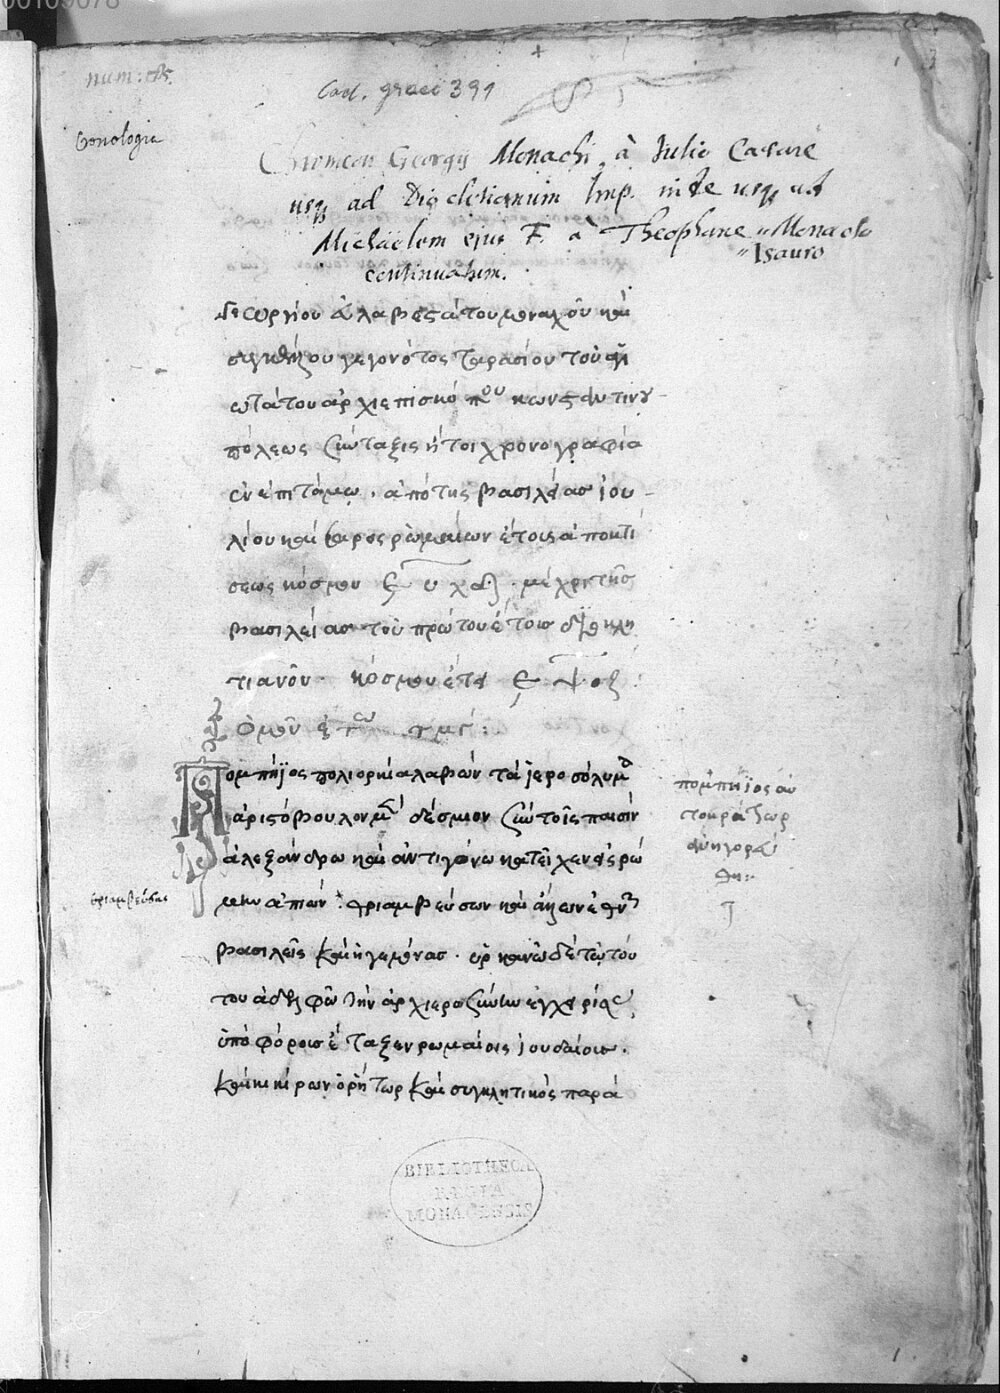 00109078
num: 185.
Cod. graec 391
Cronologia
Chronicon Georgij Monachi, à Iulio Caesare
usq₃ ad Diocletianum Imp. inde usq₃ ad
Michaelem ejus F. à Theophane Monacho
Isauro
continuatum.
Γεωργίου ἀλαβεςάτου μοναχοῦ καὶ
συγκέλλου γεγονότος Ταρασίου τοῦ ἁγι
ωτάτου ἀρχιεπισκόπου κωνςαντινου
πόλεως σύνταξις ἤτοι χρονογραφία
ἐν ἐπιτόμω. ἀπὸ τῆς βασιλείας ἰου
λίου καίσαρος ῥωμαίων ἔτους ἀπὸ κτί
σεως κόσμου μέχρι τῆς
βασιλείας τοῦ πρώτου ἔτους διοκλη
τιανοῦ. κόσμου ἔτει ͵εψοζ
Ὁμοῦ ἐτῶ
Πομπήϊος πολιορκία λαβὼν τὰ ἱεροσόλυμα
ἀριςόβουλον μὲν δέσμιον σὺν τοῖς παισὶν
ἀλεξάνδρω καὶ ἀντιγόνω κατεῖχεν εἰς ῥώ
μην ἀπιών. θριαμβεύσων καὶ ἄλλων ἐθνῶν
βασιλεῖς καὶ ἡγεμόνας. ὑρκανῶ δὲ τῶ τού
του ἀδελφῶ τὴν ἀρχιεροσύνην ἐγχειρίσας
ὑπὸ φόροις ἔταξεν ῥωμαίοις ἰουδαίους.
καὶ κικίρων ὁ ῥήτωρ καὶ συγκλητικὸς παρὰ
πομπήϊος αὐ
τοκράτωρ
ἀνηγορεύ
θη
θριαμβεύσας
BIBLIOTHECA
REGIA
MONACENSIS
1